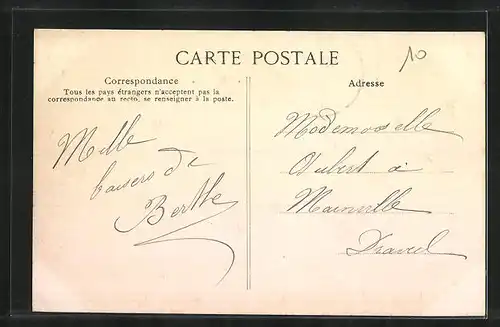 CARTE POSTALE
10
Correspondance
Tous les pays étrangers n'acceptent pas la
correspondance au recto, se renseigner à la poste.
Mille
baisers de
Berthe
Adresse
Mademoiselle
Aubert à
Mainville
Draveil